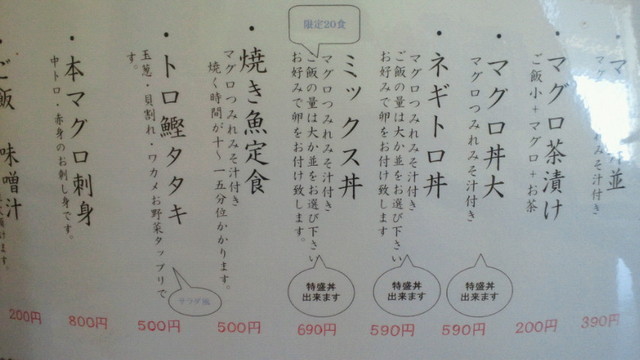 並
汁付き
390円
・マグロ茶漬け
ご飯小＋マグロ＋お茶
200円
・マグロ丼大
マグロつみれみそ汁付き
特盛丼
出来ます
590円
・ネギトロ丼
マグロつみれみそ汁付き
ご飯の量は大か並をお選び下さい
お好みで卵をお付け致します
特盛丼
出来ます
590円
限定20食
・ミックス丼
マグロつみれみそ汁付き
ご飯の量は大か並をお選び下さい
お好みで卵をお付け致します。
特盛丼
出来ます
690円
・焼き魚定食
マグロつみれみそ汁付き
焼く時間が十～一五分位かかります。
500円
・トロ鰹タタキ
玉葱・貝割れ・ワカメお野菜タップリで
す。
サラダ風
500円
・本マグロ刺身
中トロ・赤身のお刺し身です。
800円
ご飯 味噌汁
けます。
200円